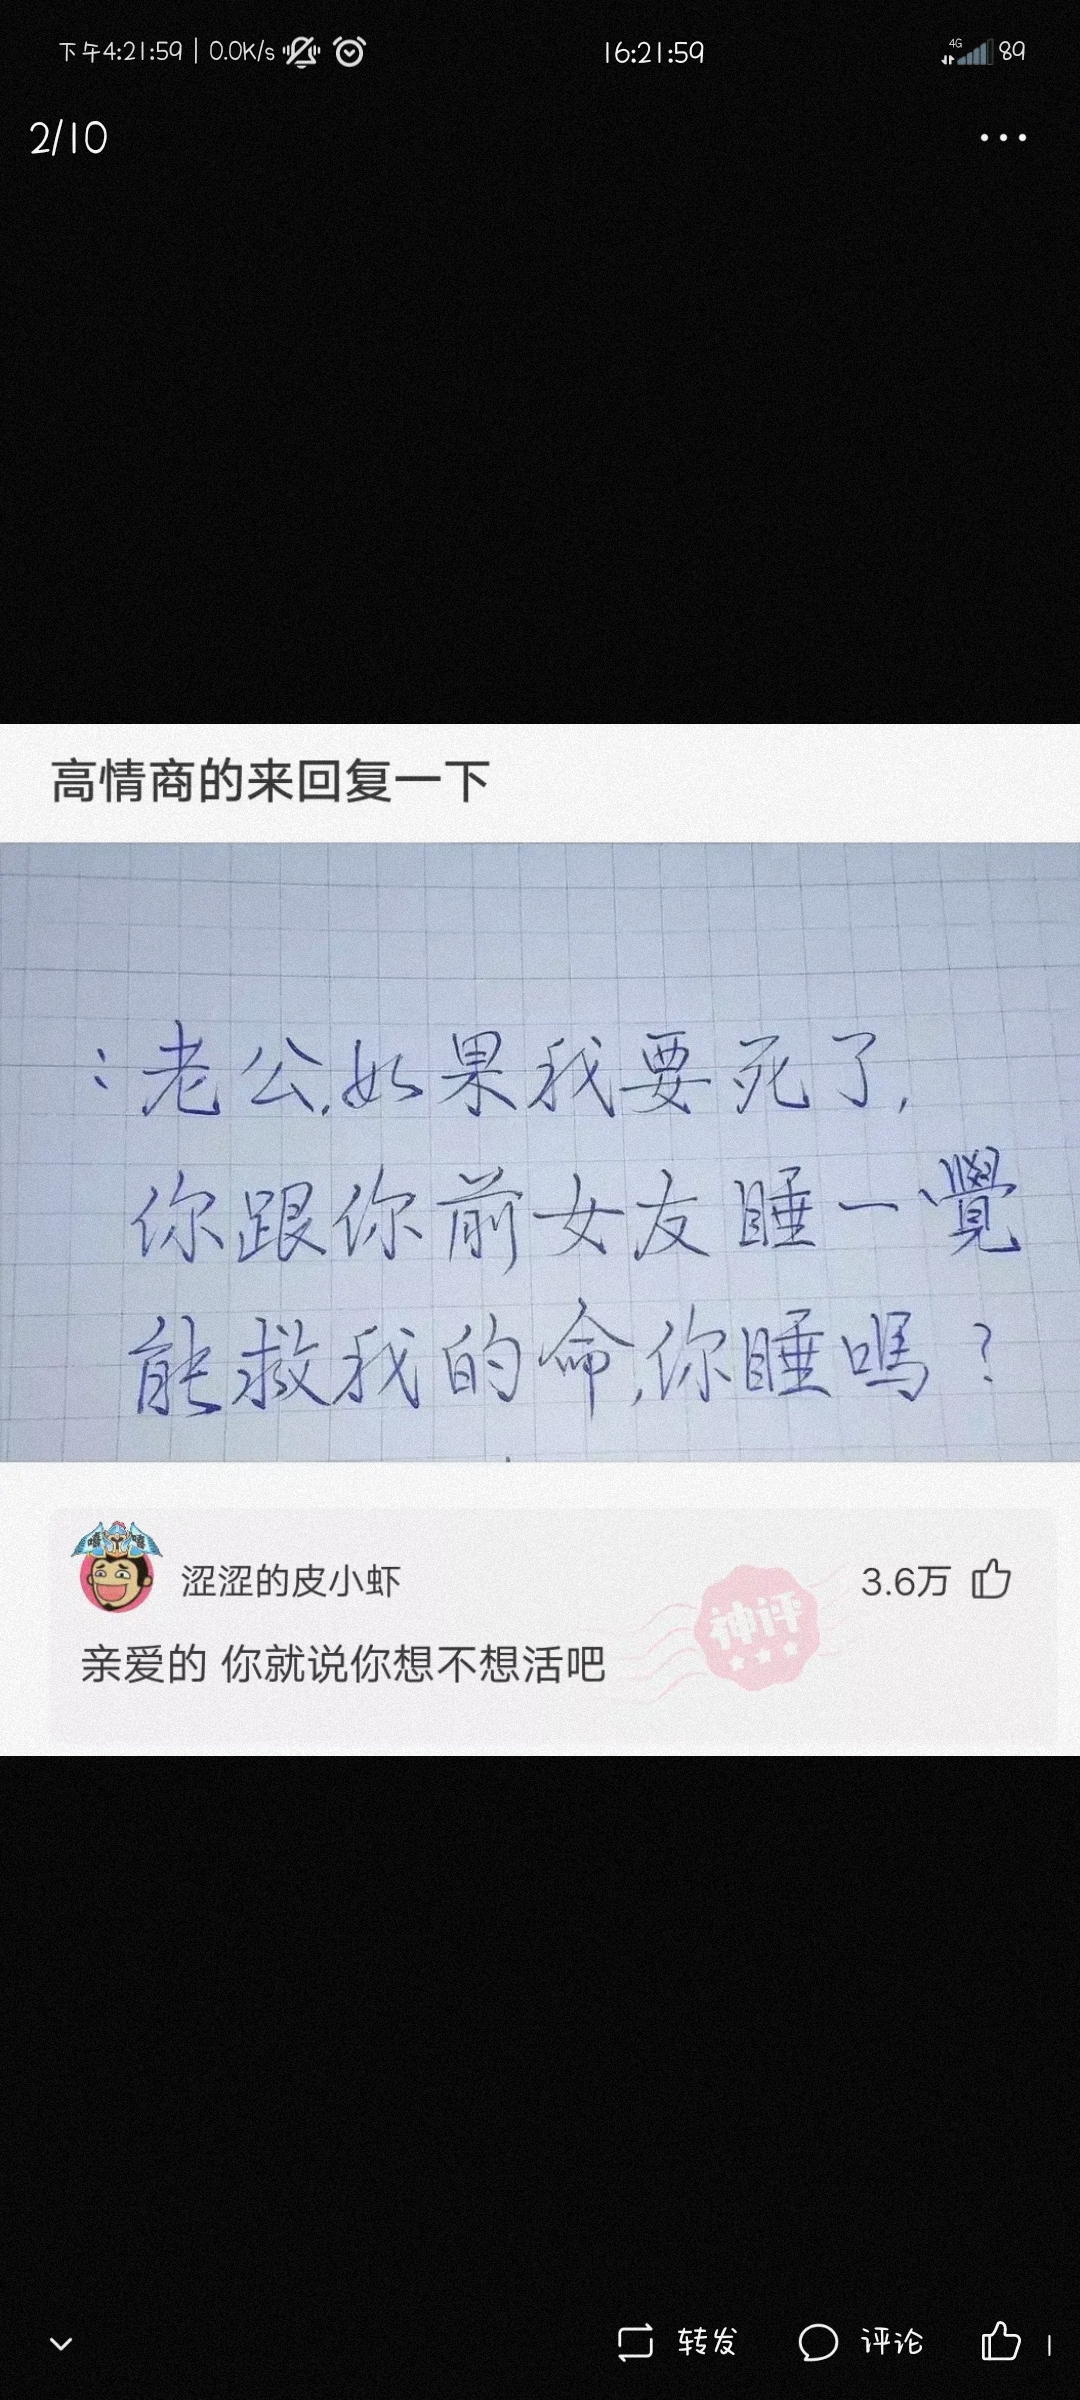 下午4:21:59 | 0.0K/s
16:21:59
4G
89
2/10
高情商的来回复一下
：老公，如果我要死了，
你跟你前女友睡一覺
能救我的命，你睡嗎？
嘻 嘻
涩涩的皮小虾
3.6万
神评
亲爱的 你就说你想不想活吧
转发
评论
1